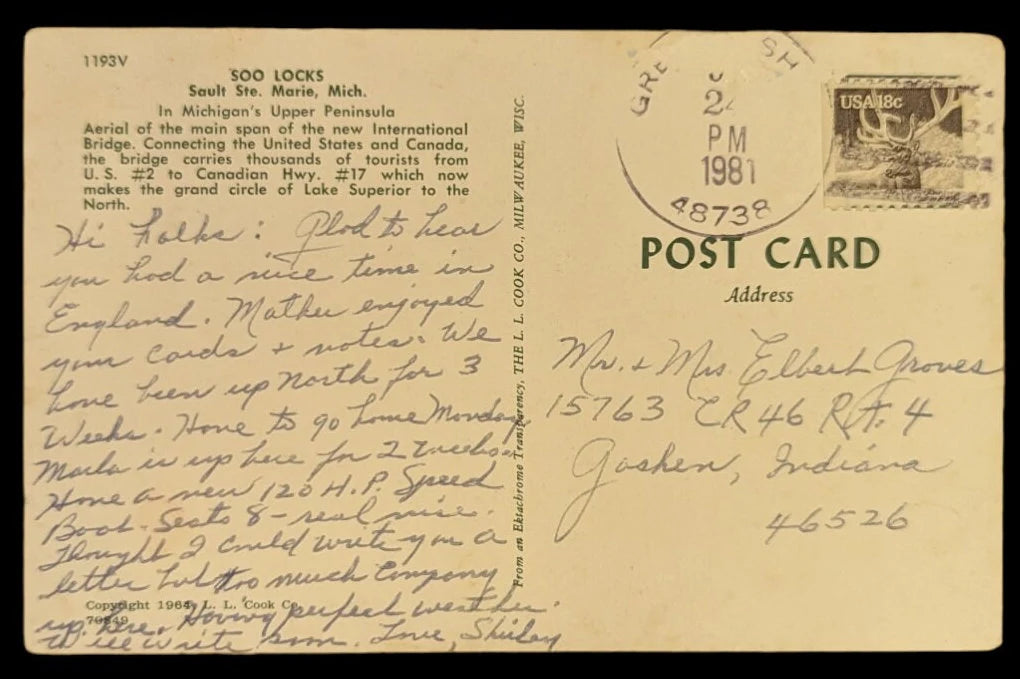 1193V
SOO LOCKS
Sault Ste. Marie, Mich.
In Michigan's Upper Peninsula
Aerial of the main span of the new International
Bridge. Connecting the United States and Canada,
the bridge carries thousands of tourists from
U.S. #2 to Canadian Hwy. #17 which now
makes the grand circle of Lake Superior to the
North.
Hi Folks: Glad to hear
you had a nice time in
England. Mother enjoyed
your cards + notes. We
have been up North for 3
Weeks. Have to go home Monday
Marla is up here for 2 weeks.
Have a new 120 H.P. Speed
Boat. Seats 8 - real nice.
Thought I could write you a
letter but too much Company
up here. Having perfect weather.
Will write soon. Love, Shirley
Copyright 1964, L. L. Cook Co.
70849
From an Ektachrome Transparency, THE L. L. COOK CO., MILWAUKEE, WISC.
PM
1981
48738
USA 18c
POST CARD
Address
Mr. + Mrs Elbert Groves
15763 CR 46 Rt. 4
Goshen, Indiana
46526